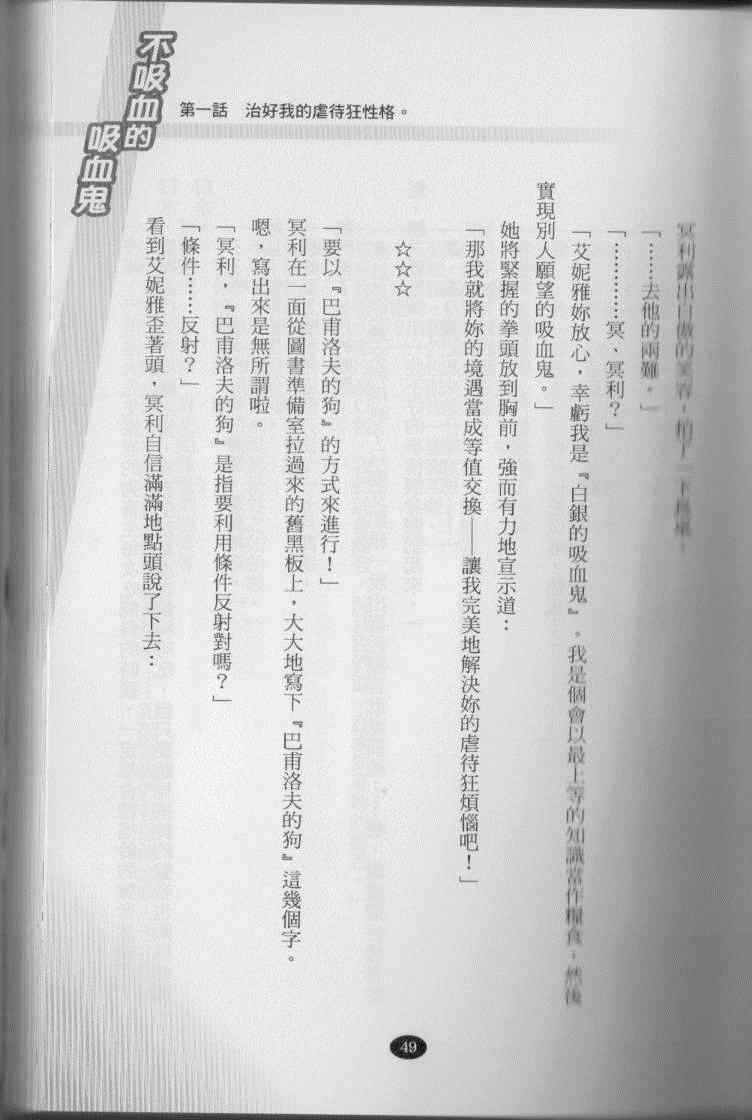 不吸血的
吸血鬼
第一話　治好我的虐待狂性格。
冥利露出自傲的笑容，
「……去他的兩難。」
「…………冥、冥利？」
「艾妮雅妳放心，幸虧我是『白銀的吸血鬼』。我是個會以最上等的知識當作糧食，然後
實現別人願望的吸血鬼。」
她將緊握的拳頭放到胸前，強而有力地宣示道：
「那我就將妳的境遇當成等值交換——讓我完美地解決妳的虐待狂煩惱吧！」
☆☆☆
「要以『巴甫洛夫的狗』的方式來進行！」
冥利在一面從圖書準備室拉過來的舊黑板上，大大地寫下『巴甫洛夫的狗』這幾個字。
嗯，寫出來是無所謂啦。
「冥利，『巴甫洛夫的狗』是指要利用條件反射對嗎？」
「條件……反射？」
看到艾妮雅歪著頭，冥利自信滿滿地點頭說了下去：
49